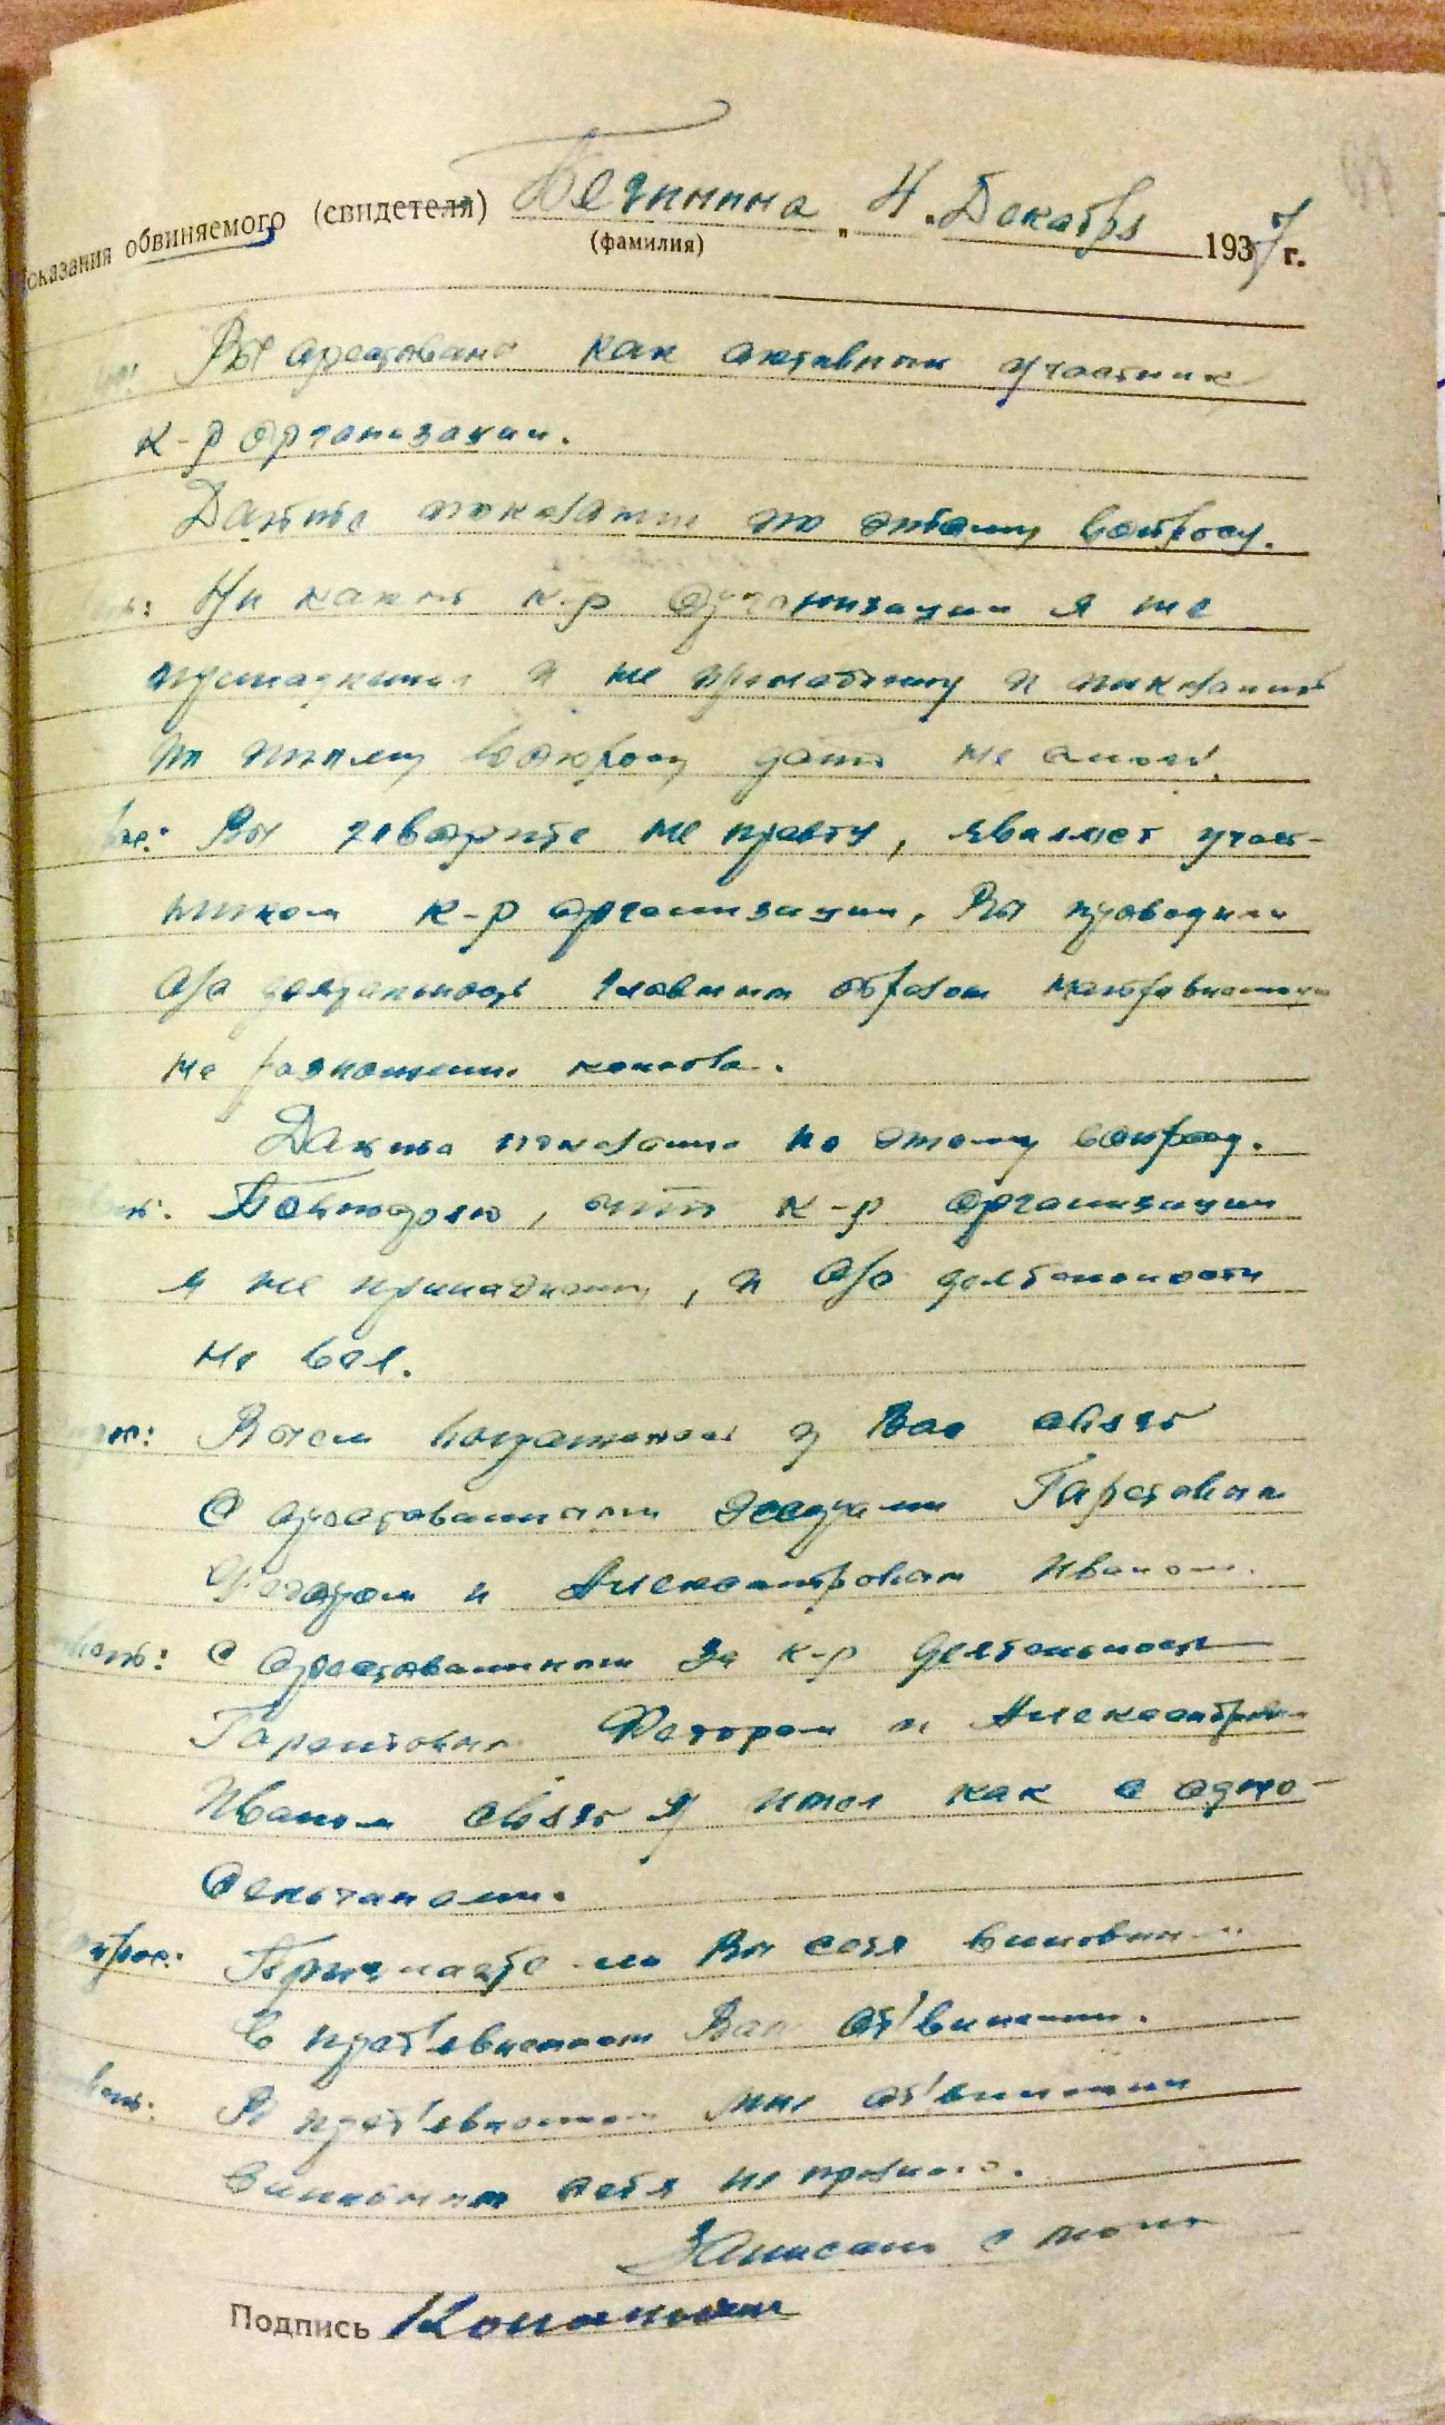 показания обвиняемого (свидетеля) Бегинина „ 4 . Декабря 1937 г.
(фамилия)
Вы арестованы как активный участник
к-р организации.
Дайте показания по этому вопросу.
Ни какой к-р организации я не
и не принадлежу и показаний
по этому вопросу дать не могу.
Вы говорите не правду, являясь участ-
ником к-р организации, Вы проводили
а/с деятельность главным образом направленную
на разложение колхоза.
Дайте показания по этому вопросу.
Повторяю, что к-р организации
я не принадлежу, и а/с деятельности
не вел.
у Вас связь
с арестованными эсерами
Федором и Александровым Иваном.
С арестованным за к-р деятельность
Федором и Александровым
Иваном связь я имел как с одно-
сельчанами.
Признаете ли Вы себя виновным
в пред'явленном Вам об'винении.
В пред'явленном мне об'винении
виновным себя не признаю.
Записано с моих
Подпись